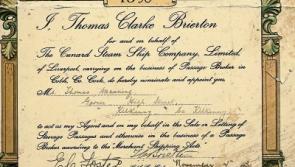 J. Thomas Clarke Brierton
for and on behalf of
The Cunard Steam Ship Company, Limited,
of Liverpool, carrying on the business of Passage Broker in
Cobh, Co. Cork, do hereby nominate and appoint you
Mr. Thomas Manning
High Street,
Kilkenny Co Kilkenny
to act as my Agent and on my behalf in the Sale or Letting of
Steerage Passages and otherwise in the business of a Passage
Broker according to the Merchant Shipping Acts.
November